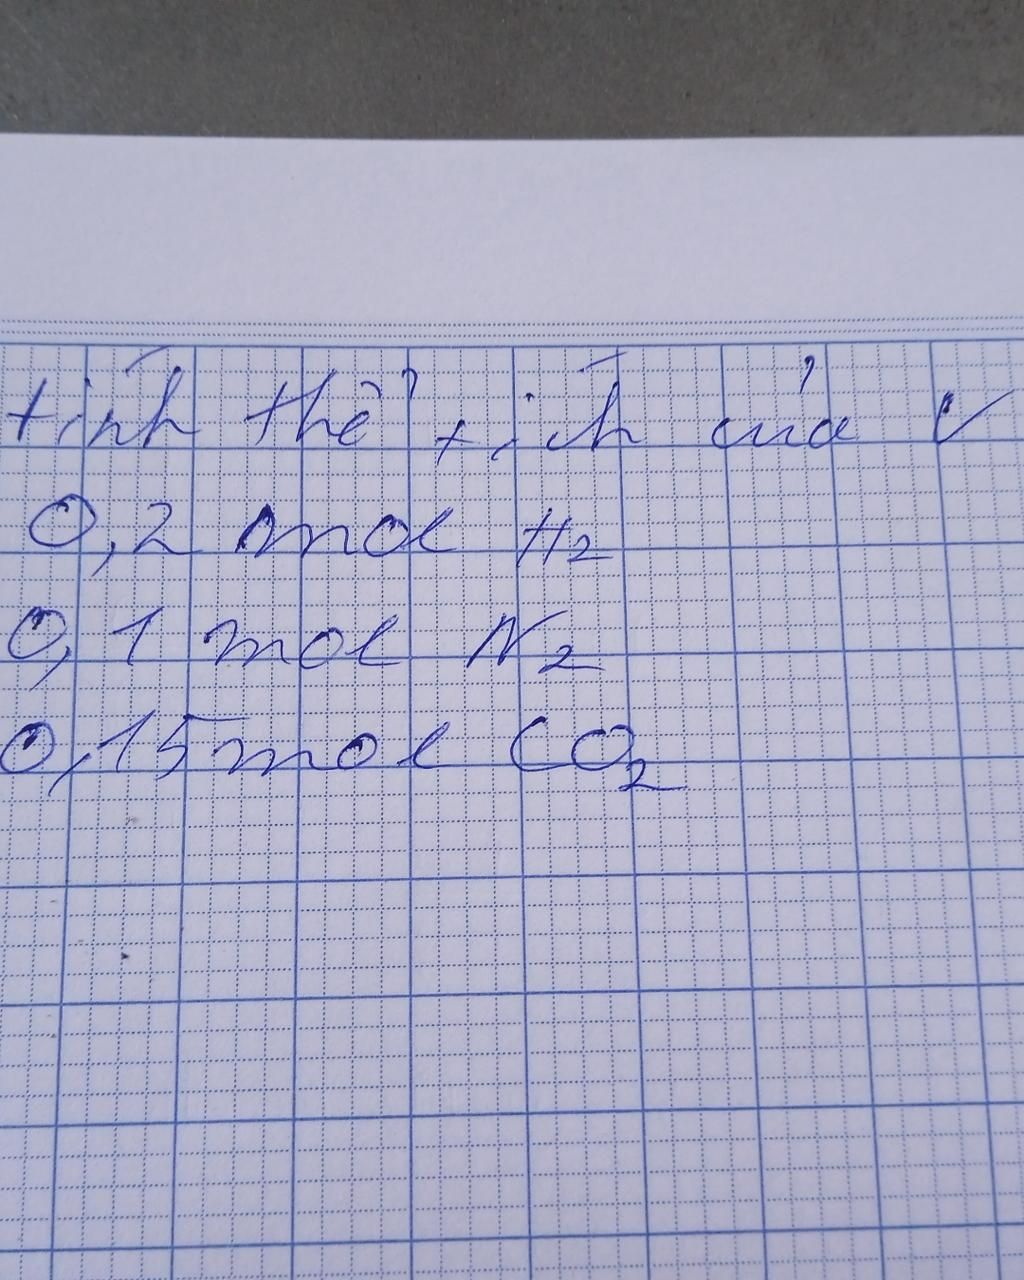 tính thể tích của V
0,2 mol H2
0,1 mol N2
0,15 mol CO2